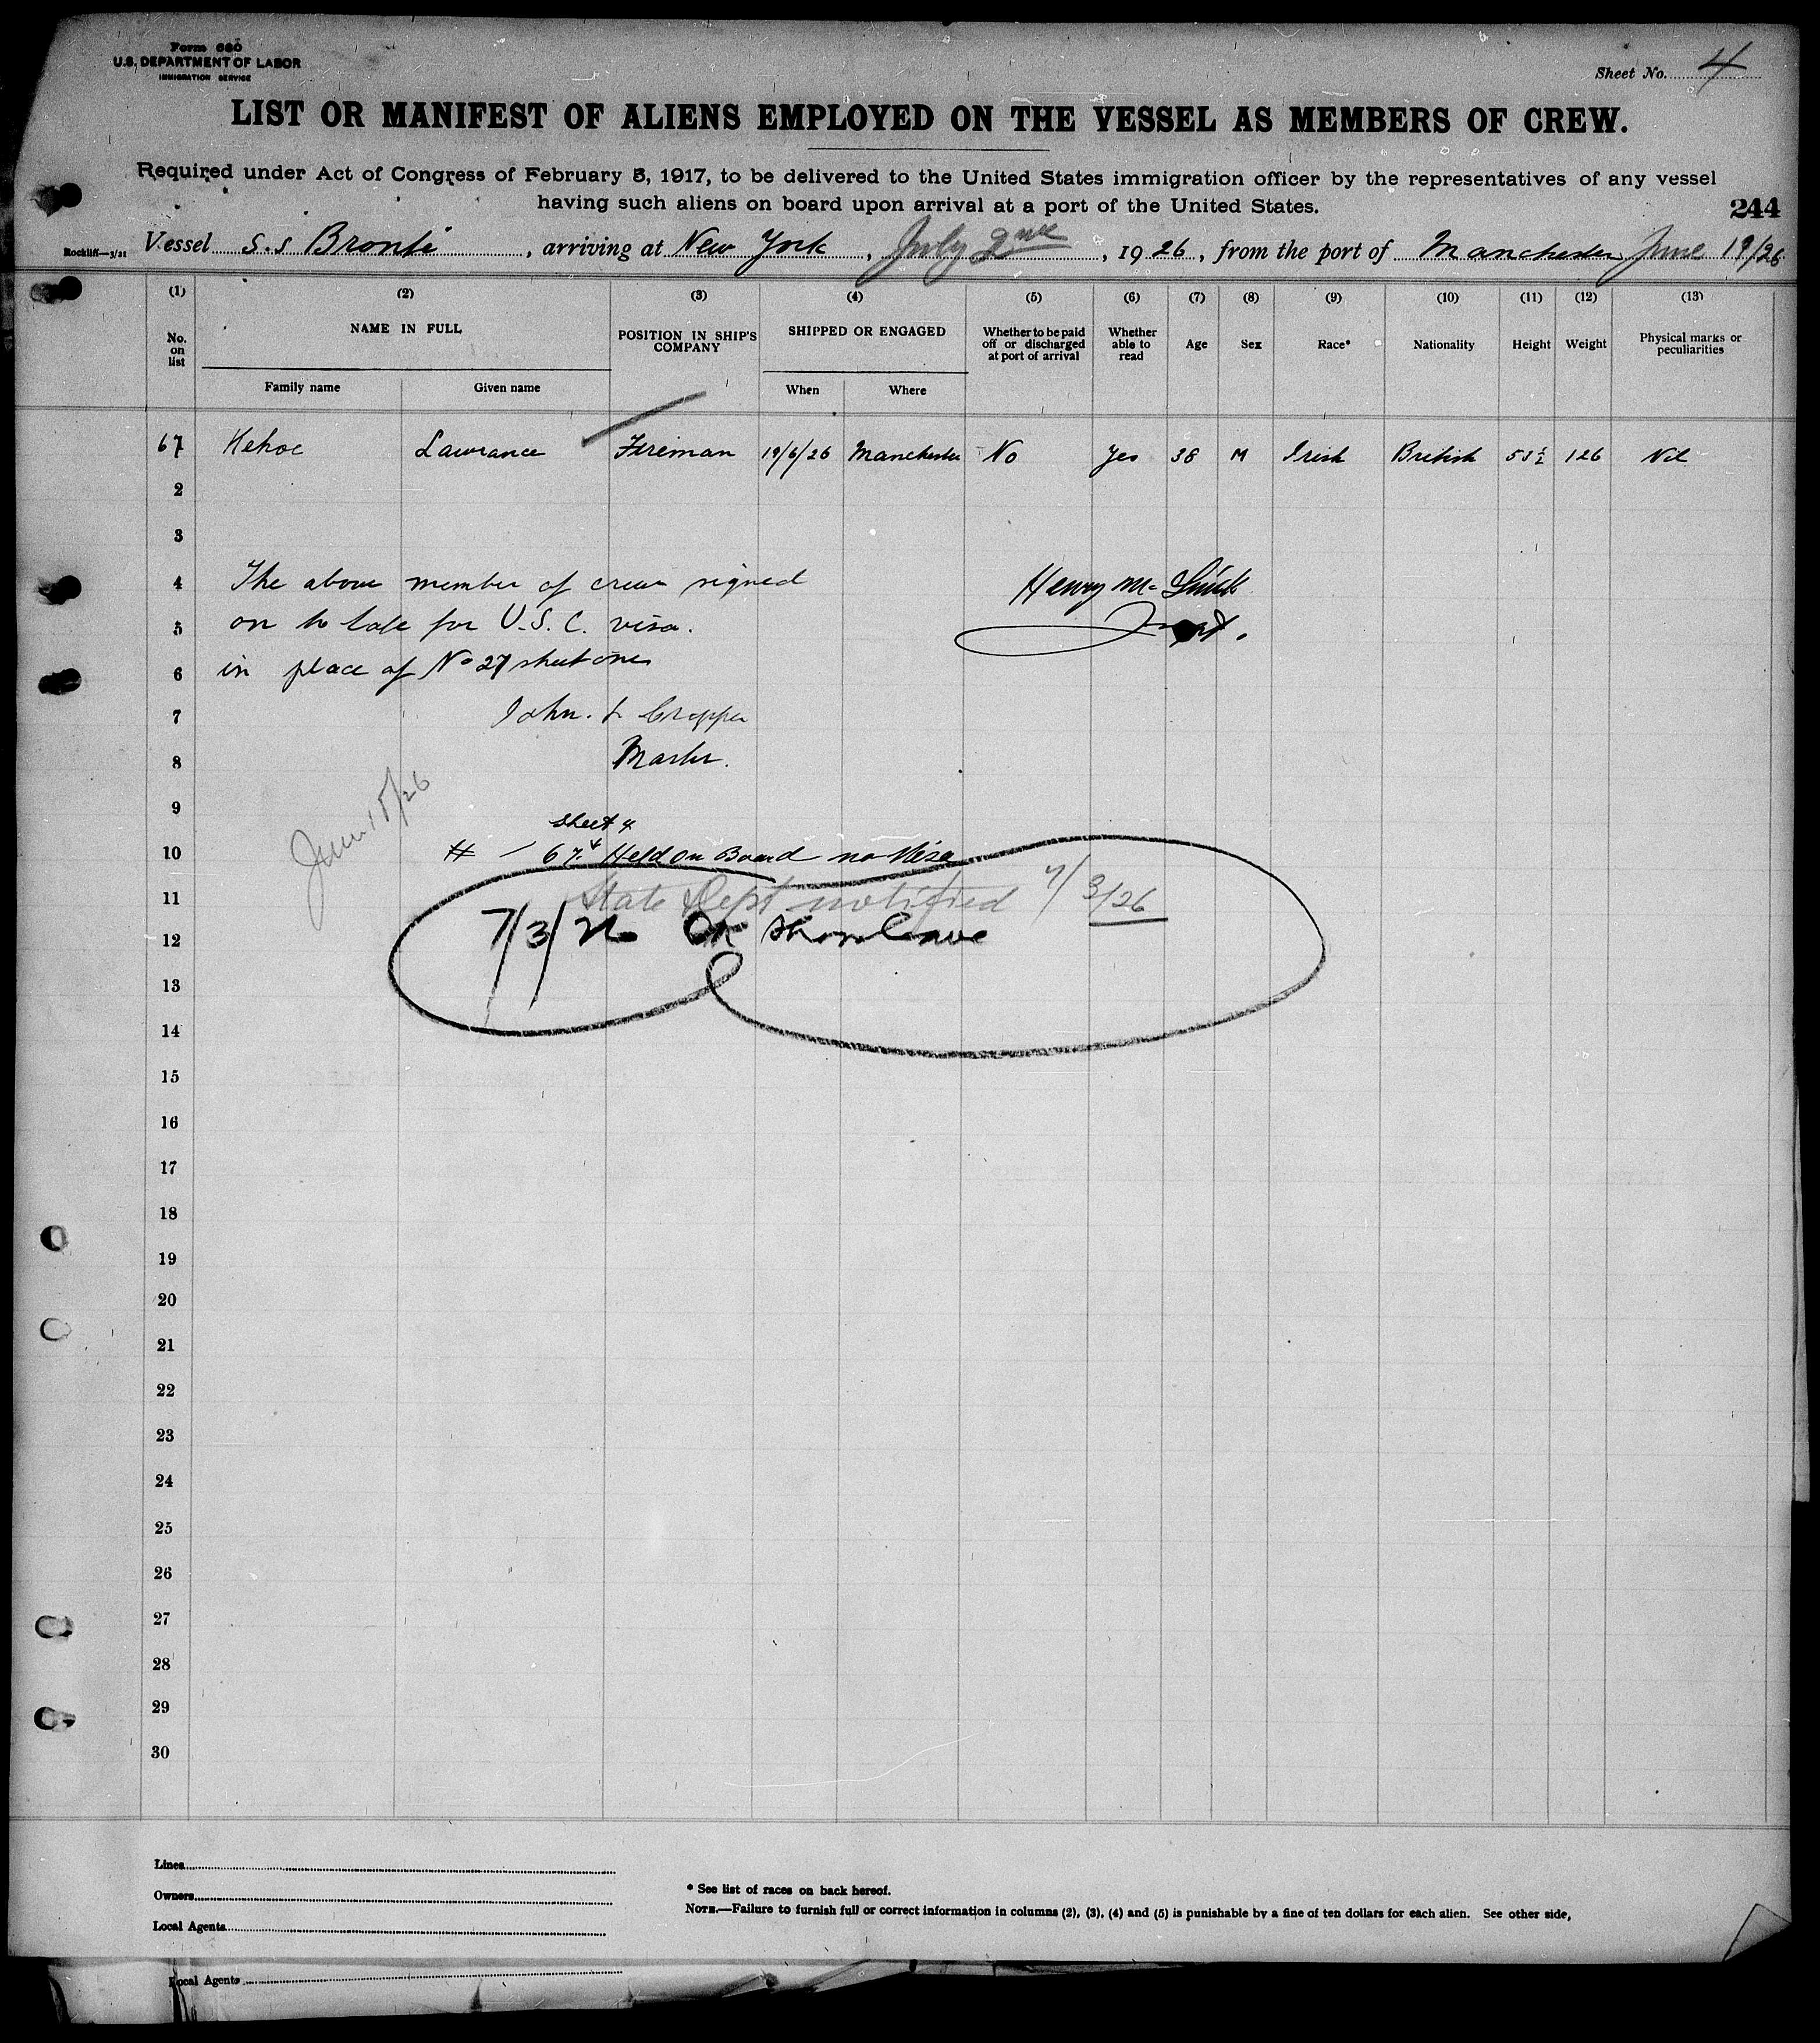 Form 680
U.S. DEPARTMENT OF LABOR
IMMIGRATION SERVICE
Sheet No. 4
LIST OR MANIFEST OF ALIENS EMPLOYED ON THE VESSEL AS MEMBERS OF CREW.
Required under Act of Congress of February 5, 1917, to be delivered to the United States immigration officer by the representatives of any vessel
having such aliens on board upon arrival at a port of the United States.
244
Rockliff—3/21
Vessel S.S Bronte, arriving at New York, July 2nd, 1926, from the port of Manchester June 19/26
(1) (2) (3) (4) (5) (6) (7) (8) (9) (10) (11) (12) (13)
No. on list NAME IN FULL POSITION IN SHIP'S COMPANY SHIPPED OR ENGAGED Whether to be paid off or discharged at port of arrival Whether able to read Age Sex Race* Nationality Height Weight Physical marks or peculiarities
Family name Given name When Where
67 Kehoe Lawrance Fireman 19/6/26 Manchester No Yes 38 M Irish British 126 Nil
2
3
4 The above member of crew signed Henry
5 on to late for U.S.C. visa.
6 in place of No 27 sheet one
7 John
8 Master.
9
sheet 4
10 67 Held on Board no visa
11 State Dept notified 7/3/26
12 7/3/26 OK shore leave
13
14
15
16
17
18
19
20
21
22
23
24
25
26
27
28
29
30
Lines
Owners
Local Agents
* See list of races on back hereof.
NOTE.—Failure to furnish full or correct information in columns (2), (3), (4) and (5) is punishable by a fine of ten dollars for each alien. See other side,
Local Agents